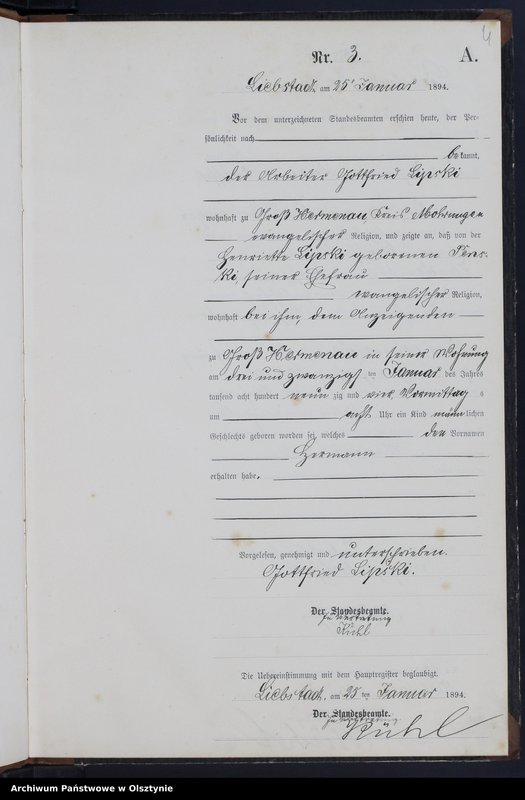 4
Nr. 3. A.
Liebstadt, am 25t Januar 1894.
Vor dem unterzeichneten Standesbeamten erschien heute, der Per-
sönlichkeit nach
bekannt,
der Arbeiter Gottfried Lipski
wohnhaft zu Groß Hermenau, Kreis Mohrungen
evangelischer Religion, und zeigte an, daß von der
Henriette Lipski geborenen
ki, seiner Ehefrau
evangelischer Religion,
wohnhaft bei ihm, dem Anzeigenden
zu Groß Hermenau in seiner Wohnung
am drei und zwanzigs ten Januar des Jahres
tausend acht hundert neun zig und vier Vormittag s
um acht Uhr ein Kind männlichen
Geschlechts geboren worden sei, welches den Vornamen
Hermann
erhalten habe.
Vorgelesen, genehmigt und unterschrieben.
Gottfried Lipski.
Der Standesbeamte.
In Vertretung
Kühl
Die Uebereinstimmung mit dem Hauptregister beglaubigt.
Liebstadt, am 25 ten Januar 1894.
Der Standesbeamte.
In Vertretung
Kühl
Archiwum Państwowe w Olsztynie